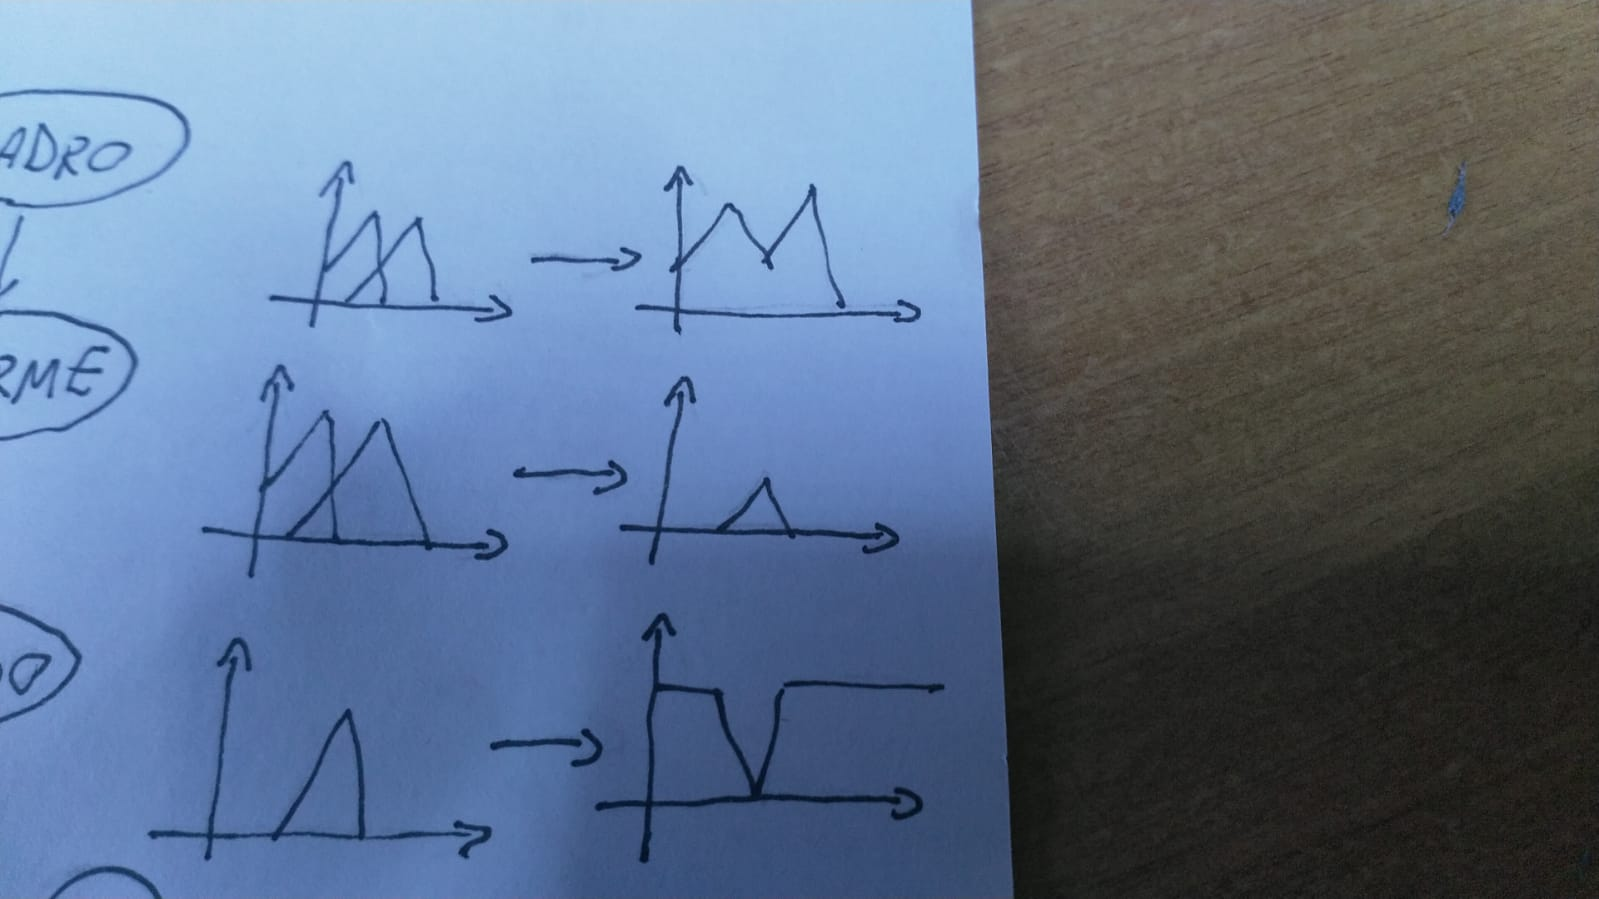 ADRO
RME
DO